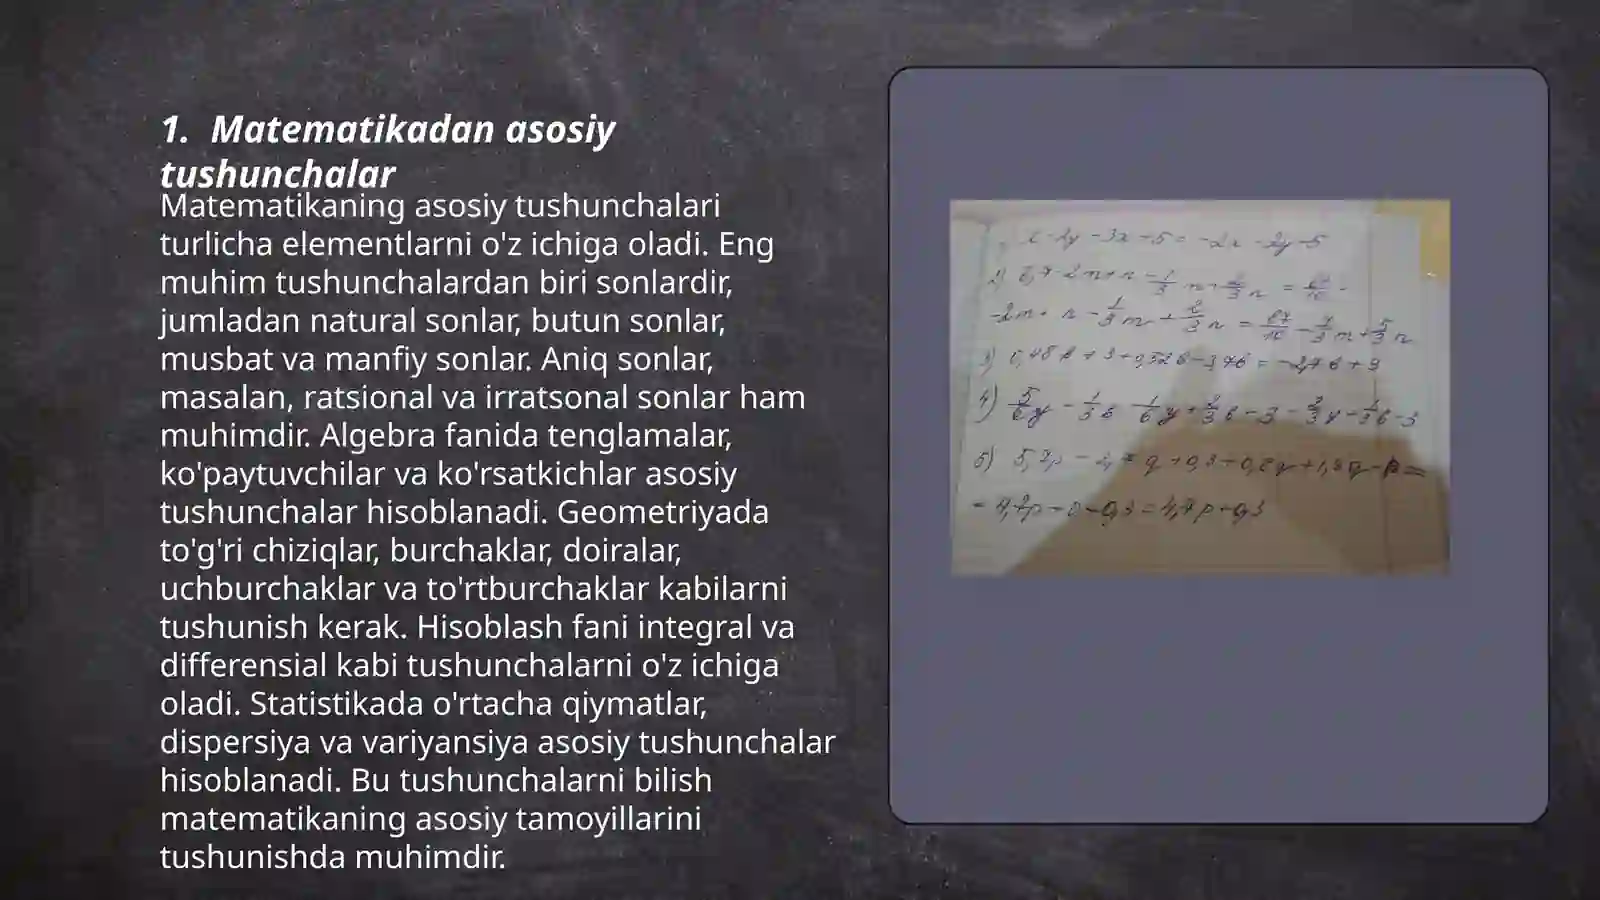 1. Matematikadan asosiy
tushunchalar
Matematikaning asosiy tushunchalari
turlicha elementlarni o'z ichiga oladi. Eng
muhim tushunchalardan biri sonlardir,
jumladan natural sonlar, butun sonlar,
musbat va manfiy sonlar. Aniq sonlar,
masalan, ratsional va irratsonal sonlar ham
muhimdir. Algebra fanida tenglamalar,
ko'paytuvchilar va ko'rsatkichlar asosiy
tushunchalar hisoblanadi. Geometriyada
to'g'ri chiziqlar, burchaklar, doiralar,
uchburchaklar va to'rtburchaklar kabilarni
tushunish kerak. Hisoblash fani integral va
differensial kabi tushunchalarni o'z ichiga
oladi. Statistikada o'rtacha qiymatlar,
dispersiya va variyansiya asosiy tushunchalar
hisoblanadi. Bu tushunchalarni bilish
matematikaning asosiy tamoyillarini
tushunishda muhimdir.
- 2y - 3x + 5 = -2x - 2y + 5
3)
4)
5)